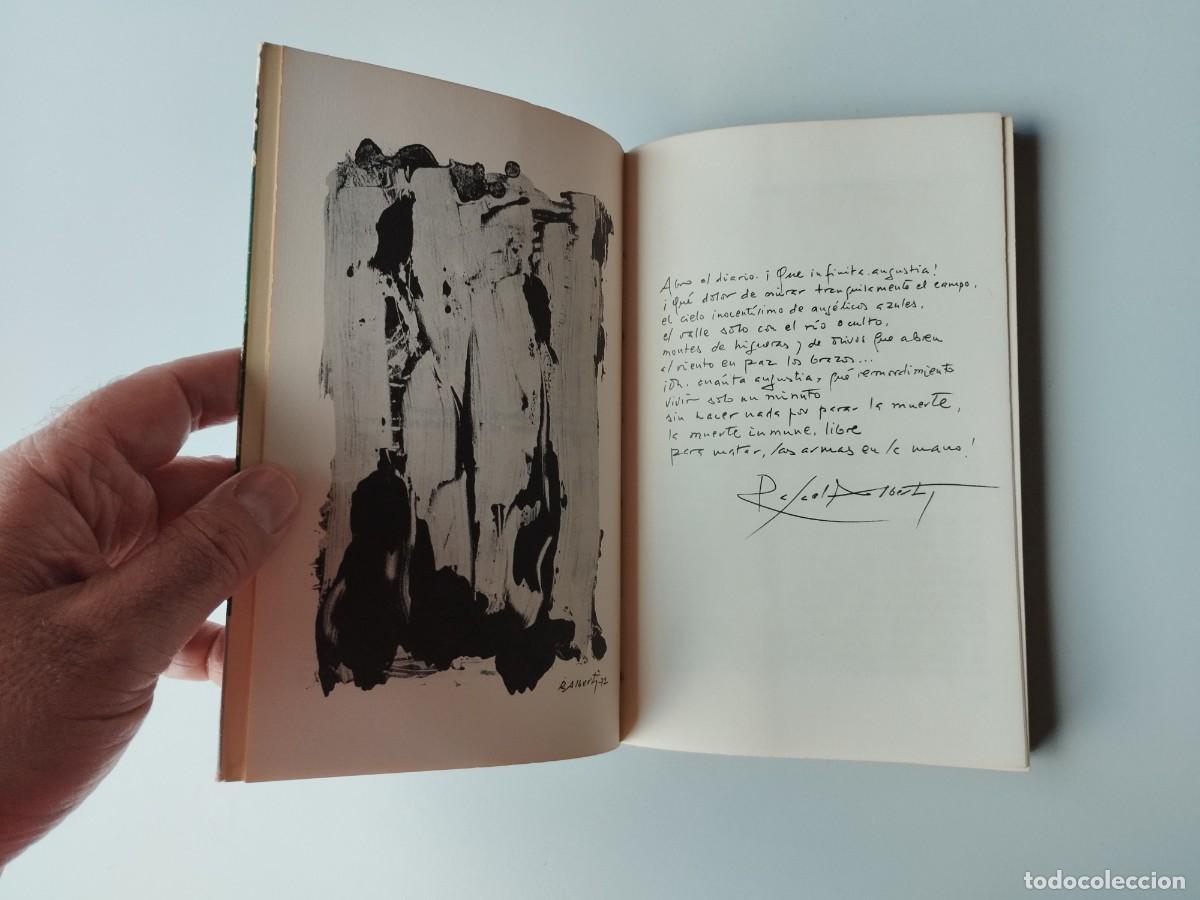 R. Alberti 72
Abro el diario. ¡Que infinita angustia!
¡Qué dolor de mirar tranquilamente el campo,
el cielo inocentísimo de angélicos azules,
el valle solo con el río oculto,
montes de higueras y de olivos que abren
al viento en paz los brazos...
¡Oh, cuánta angustia, qué remordimiento
vivir solo un minuto
sin hacer nada por parar la muerte,
la muerte inmune, libre
para matar, las armas en la mano!
Rafael Alberti
todocoleccion